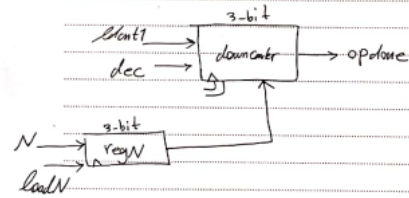 3-bit
ldcnt1
downcontr
dec
opdone
3-bit
N
regN
loadN